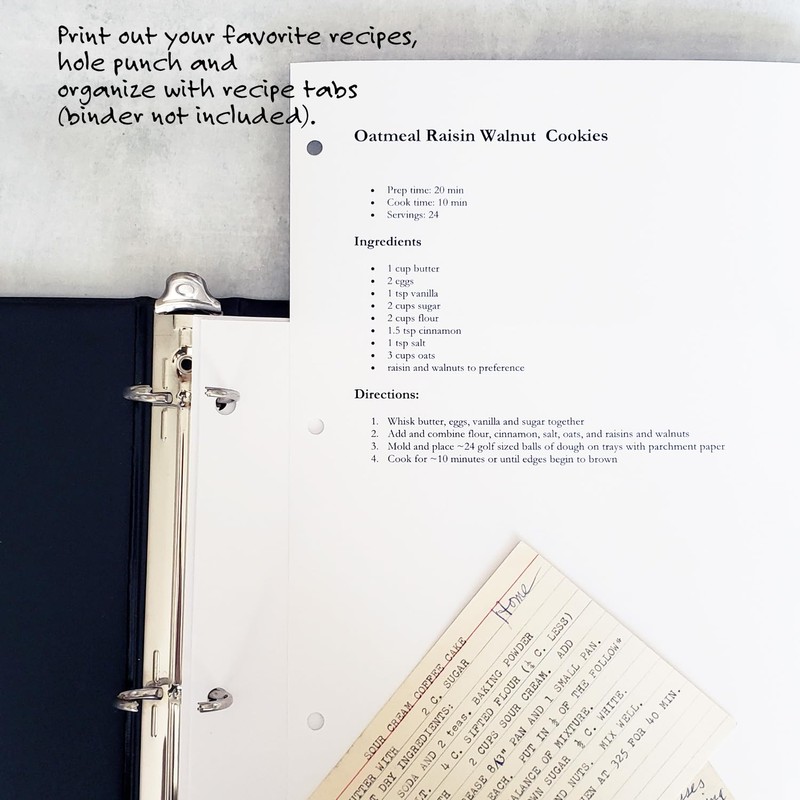 Print out your favorite recipes,
hole punch and
organize with recipe tabs
(binder not included).
Oatmeal Raisin Walnut Cookies
• Prep time: 20 min
• Cook time: 10 min
• Servings: 24
Ingredients
• 1 cup butter
• 2 eggs
• 1 tsp vanilla
• 2 cups sugar
• 2 cups flour
• 1.5 tsp cinnamon
• 1 tsp salt
• 3 cups oats
• raisin and walnuts to preference
Directions:
1. Whisk butter, eggs, vanilla and sugar together
2. Add and combine flour, cinnamon, salt, oats, and raisins and walnuts
3. Mold and place ~24 golf sized balls of dough on trays with parchment paper
4. Cook for ~10 minutes or until edges begin to brown
Home
SOUR CREAM COFFEE CAKE
WITH 2 C. SUGAR
DRY INGREDIENTS:
SODA AND 2 teas. BAKING POWDER
4 C. SIFTED FLOUR (½ C. LESS)
2 CUPS SOUR CREAM. ADD
PAN AND 1 SMALL PAN.
EACH. PUT IN ½ OF THE FOLLOW
OF MIXTURE.
SUGAR ½ C. WHITE.
AND NUTS. MIX WELL.
AT 325 FOR 40 MIN.